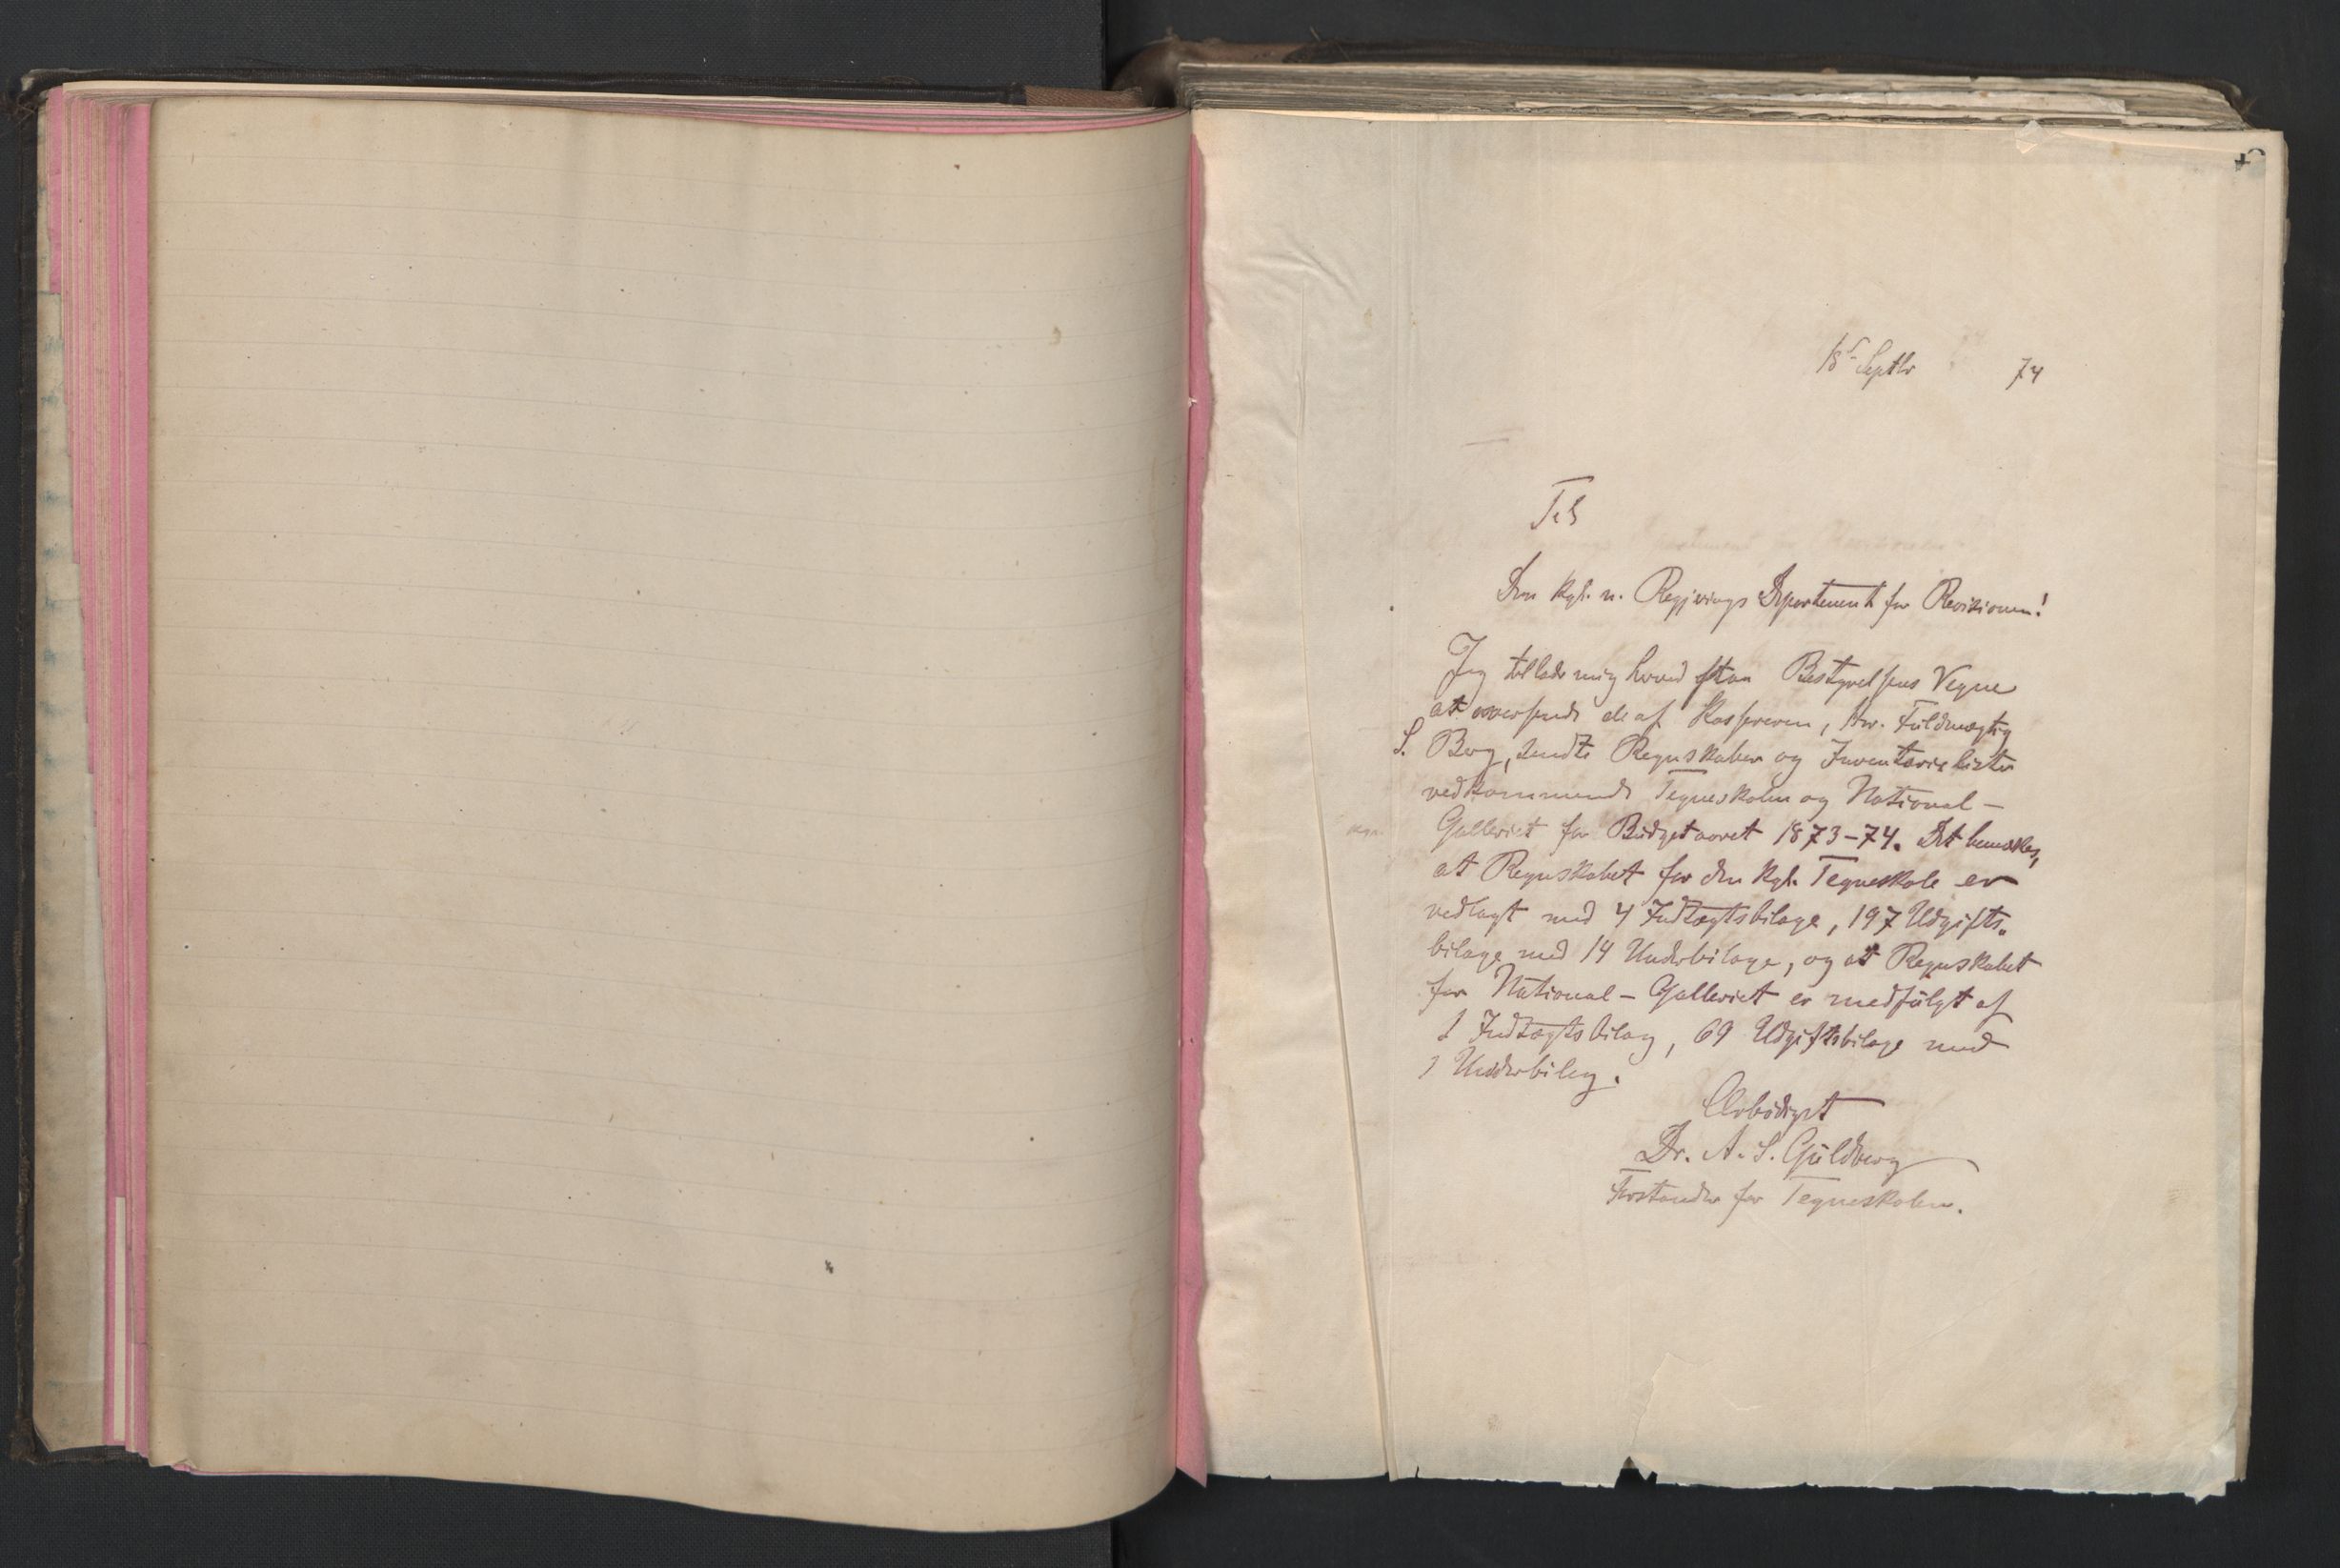 18 Septbr 74
Til
Den kgl. n. Regjerings Departement for Revisionen!
Jeg tillader mig herved paa Bestyrelsens Vegne
at oversende de af Kassereren, Hr. Fuldmægtig
S. Berg, sendte Regnskaber og Inventarielister
vedkommende Tegneskolen og National-
Galleriet for Budgetaaret 1873-74. Det bemærkes,
at Regnskabet for den kgl. Tegneskole er
vedlagt med 4 Indtægtsbilage, 197 Udgifts-
bilage med 14 Underbilage, og at Regnskabet
for National-Galleriet er medfulgt af
1 Indtægtsbilag, 69 Udgiftsbilage med
1 Underbilag.
Ærbødigst
Dr. A. S. Guldberg
Forstander for Tegneskolen.